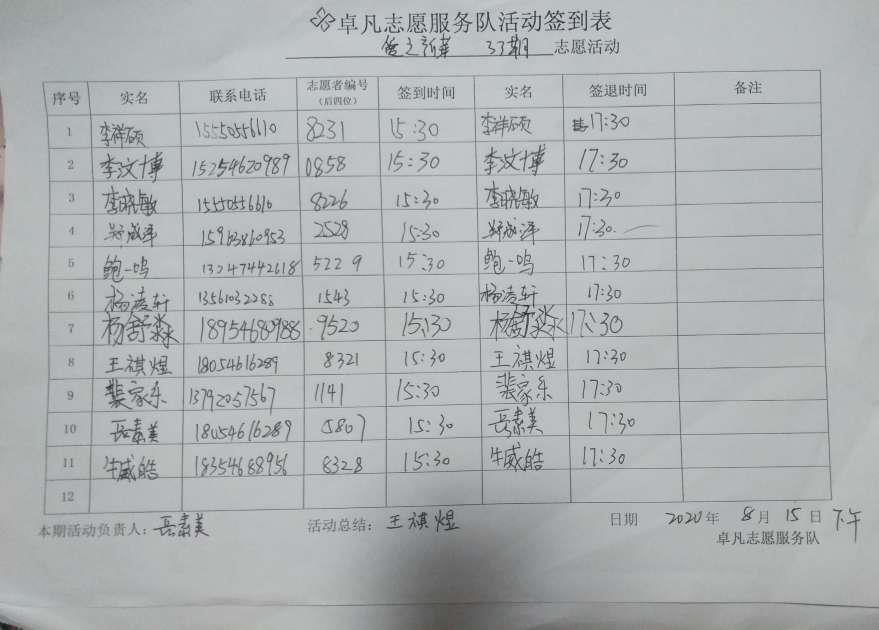 卓凡志愿服务队活动签到表
33期 志愿活动
序号 实名 联系电话 志愿者编号（后四位） 签到时间 实名 签退时间 备注
1 李祥硕 15550556610 8231 15:30 李祥硕 17:30
2 李汶博 15254620989 0858 15:30 李汶博 17:30
3 李晓敏 15550556610 8226 15:30 李晓敏 17:30
4 郑成泽 15963860953 2528 15:30 郑成泽 17:30
5 鲍一鸣 13247442618 5229 15:30 鲍一鸣 17:30
6 杨凌轩 13561032288 1543 15:30 杨凌轩 17:30
7 杨舒淼 18954680988 9520 15:30 杨舒淼 17:30
8 王祺煜 18054616289 8321 15:30 王祺煜 17:30
9 裴家乐 13792057567 1141 15:30 裴家乐 17:30
10 岳素美 18054616289 5807 15:30 岳素美 17:30
11 牛威皓 18354688956 8328 15:30 牛威皓 17:30
12
本期活动负责人：岳素美 活动总结：王祺煜 日期 2020年 8月 15日 下午
卓凡志愿服务队